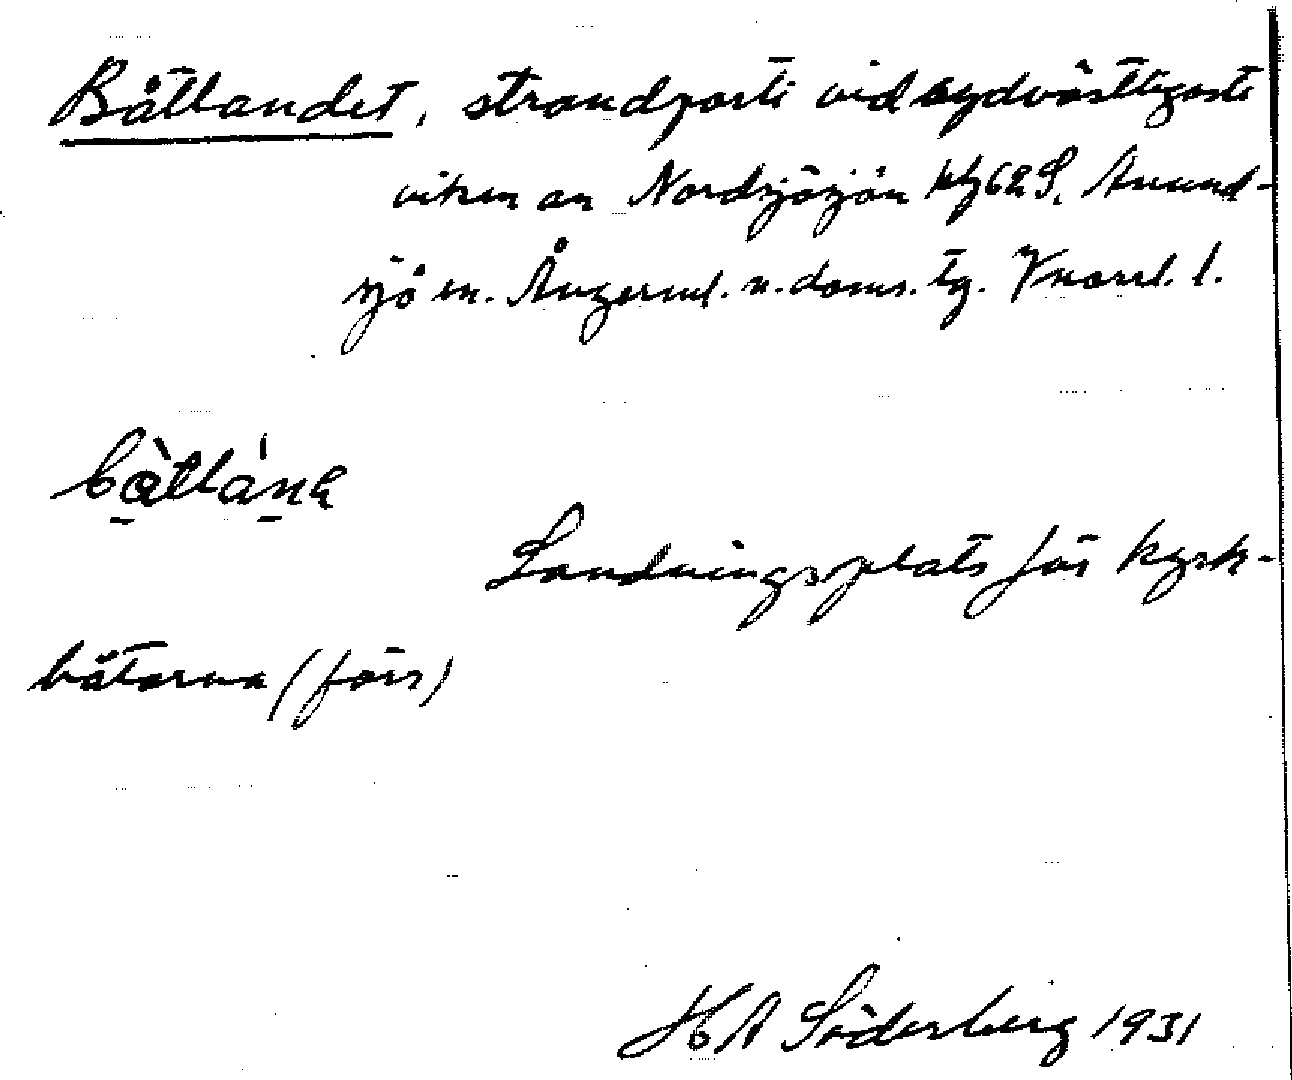 Båtlandet, strandparti vid sydvästligaste
viken av Nordsjösjön kbl 62 S, Anund-
sjö sn. Ångerml. n. doms. tg. Vnorrl. l.
Landningsplats för kyrk-
båtarna (förr)
H A Söderberg 1931